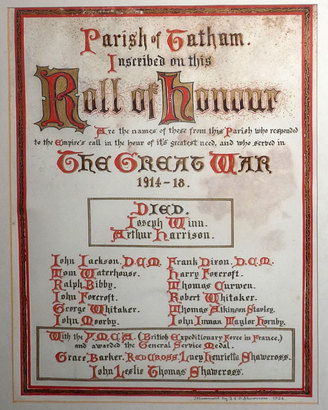 Parish of Tatham.
Inscribed on this
Roll of Honour
Are the names of those from this Parish who responded
to the Empire's call in the hour of it's greatest need, and who served in
The Great War
1914-18.
Died.
Joseph Winn.
Arthur Harrison.
John Jackson, D.C.M. Frank Dixon, D.C.M.
Tom Waterhouse. Harry Foxcroft.
Ralph Bibby. Thomas Curwen.
John Foxcroft. Robert Whitaker.
George Whitaker. Thomas Atkinson Staveley.
John Moorby. John Inman Taylor Hornby.
With the Y.M.C.A. (British Expeditionary Force in France,)
and awarded the General Service Medal.
Grace Barker, Red Cross, Lucy Henrietta Shawcross.
John Leslie Thomas Shawcross.